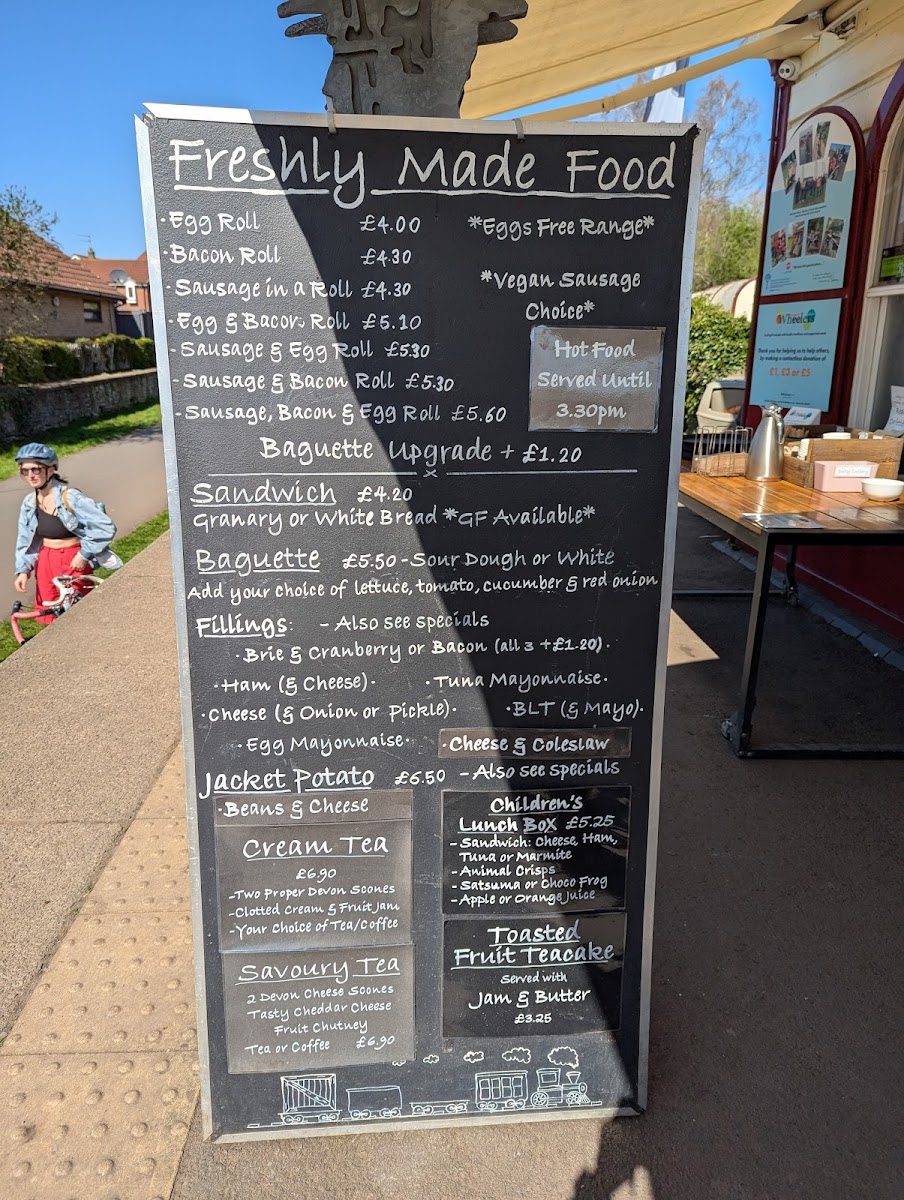 Freshly Made Food
·Egg Roll £4.00
*Eggs Free Range*
·Bacon Roll £4.30
·Sausage in a Roll £4.30
*Vegan Sausage
Choice*
·Egg & Bacon Roll £5.10
-Sausage & Egg Roll £5.30
-Sausage & Bacon Roll £5.30
-Sausage, Bacon & Egg Roll £5.60
Hot Food
Served Until
3.30pm
Baguette Upgrade + £1.20
Sandwich £4.20
Granary or White Bread *GF Available*
Baguette £5.50 - Sour Dough or White
Add your choice of lettuce, tomato, cucumber & red onion
Fillings: - Also see specials
·Brie & Cranberry or Bacon (all 3 +£1.20)·
·Ham (& Cheese)· ·Tuna Mayonnaise·
·Cheese (& Onion or Pickle)· ·BLT (& Mayo)·
·Egg Mayonnaise· ·Cheese & Coleslaw
Jacket Potato £6.50 - Also see specials
·Beans & Cheese
Cream Tea
£6.90
-Two Proper Devon Scones
-Clotted Cream & Fruit Jam
-Your Choice of Tea/Coffee
Savoury Tea
2 Devon Cheese Scones
Tasty Cheddar Cheese
Fruit Chutney
Tea or Coffee £6.90
Children's
Lunch Box £5.25
- Sandwich: Cheese, Ham,
Tuna or Marmite
- Animal Crisps
- Satsuma or Choco Frog
- Apple or Orange Juice
Toasted
Fruit Teacake
Served with
Jam & Butter
£3.25
Wheels
Thank you for helping us to help others,
by making a contactless donation of
£1, £3 or £5